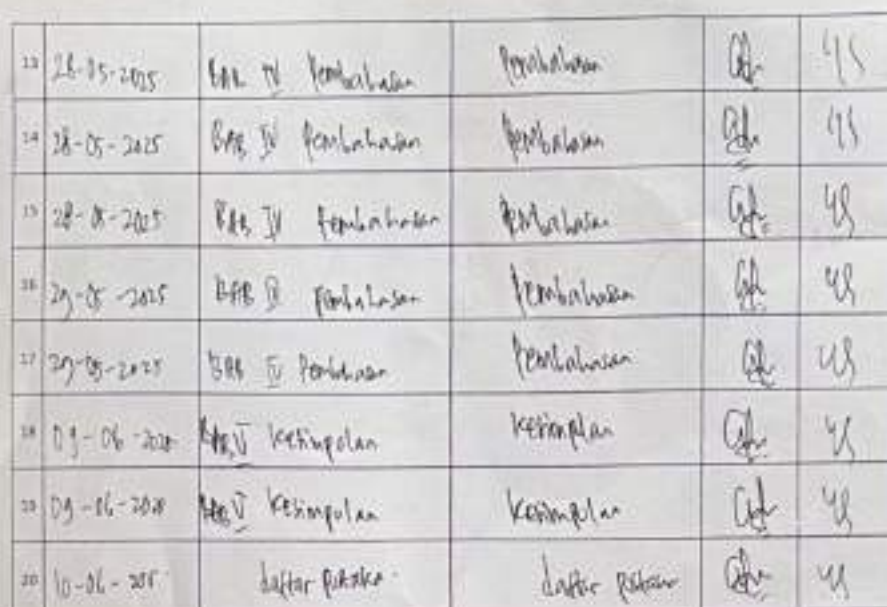 13 28-05-2025 BAB IV Pembahasan Pembahasan
14 28-05-2025 BAB IV Pembahasan Pembahasan
15 28-05-2025 BAB IV Pembahasan Pembahasan
16 29-05-2025 BAB IV Pembahasan Pembahasan
17 29-05-2025 BAB IV Pembahasan Pembahasan
18 09-06-202 BAB V Kesimpulan Kesimpulan
19 09-06-202 BAB V Kesimpulan Kesimpulan
20 10-06-20 daftar pustaka daftar pustaka